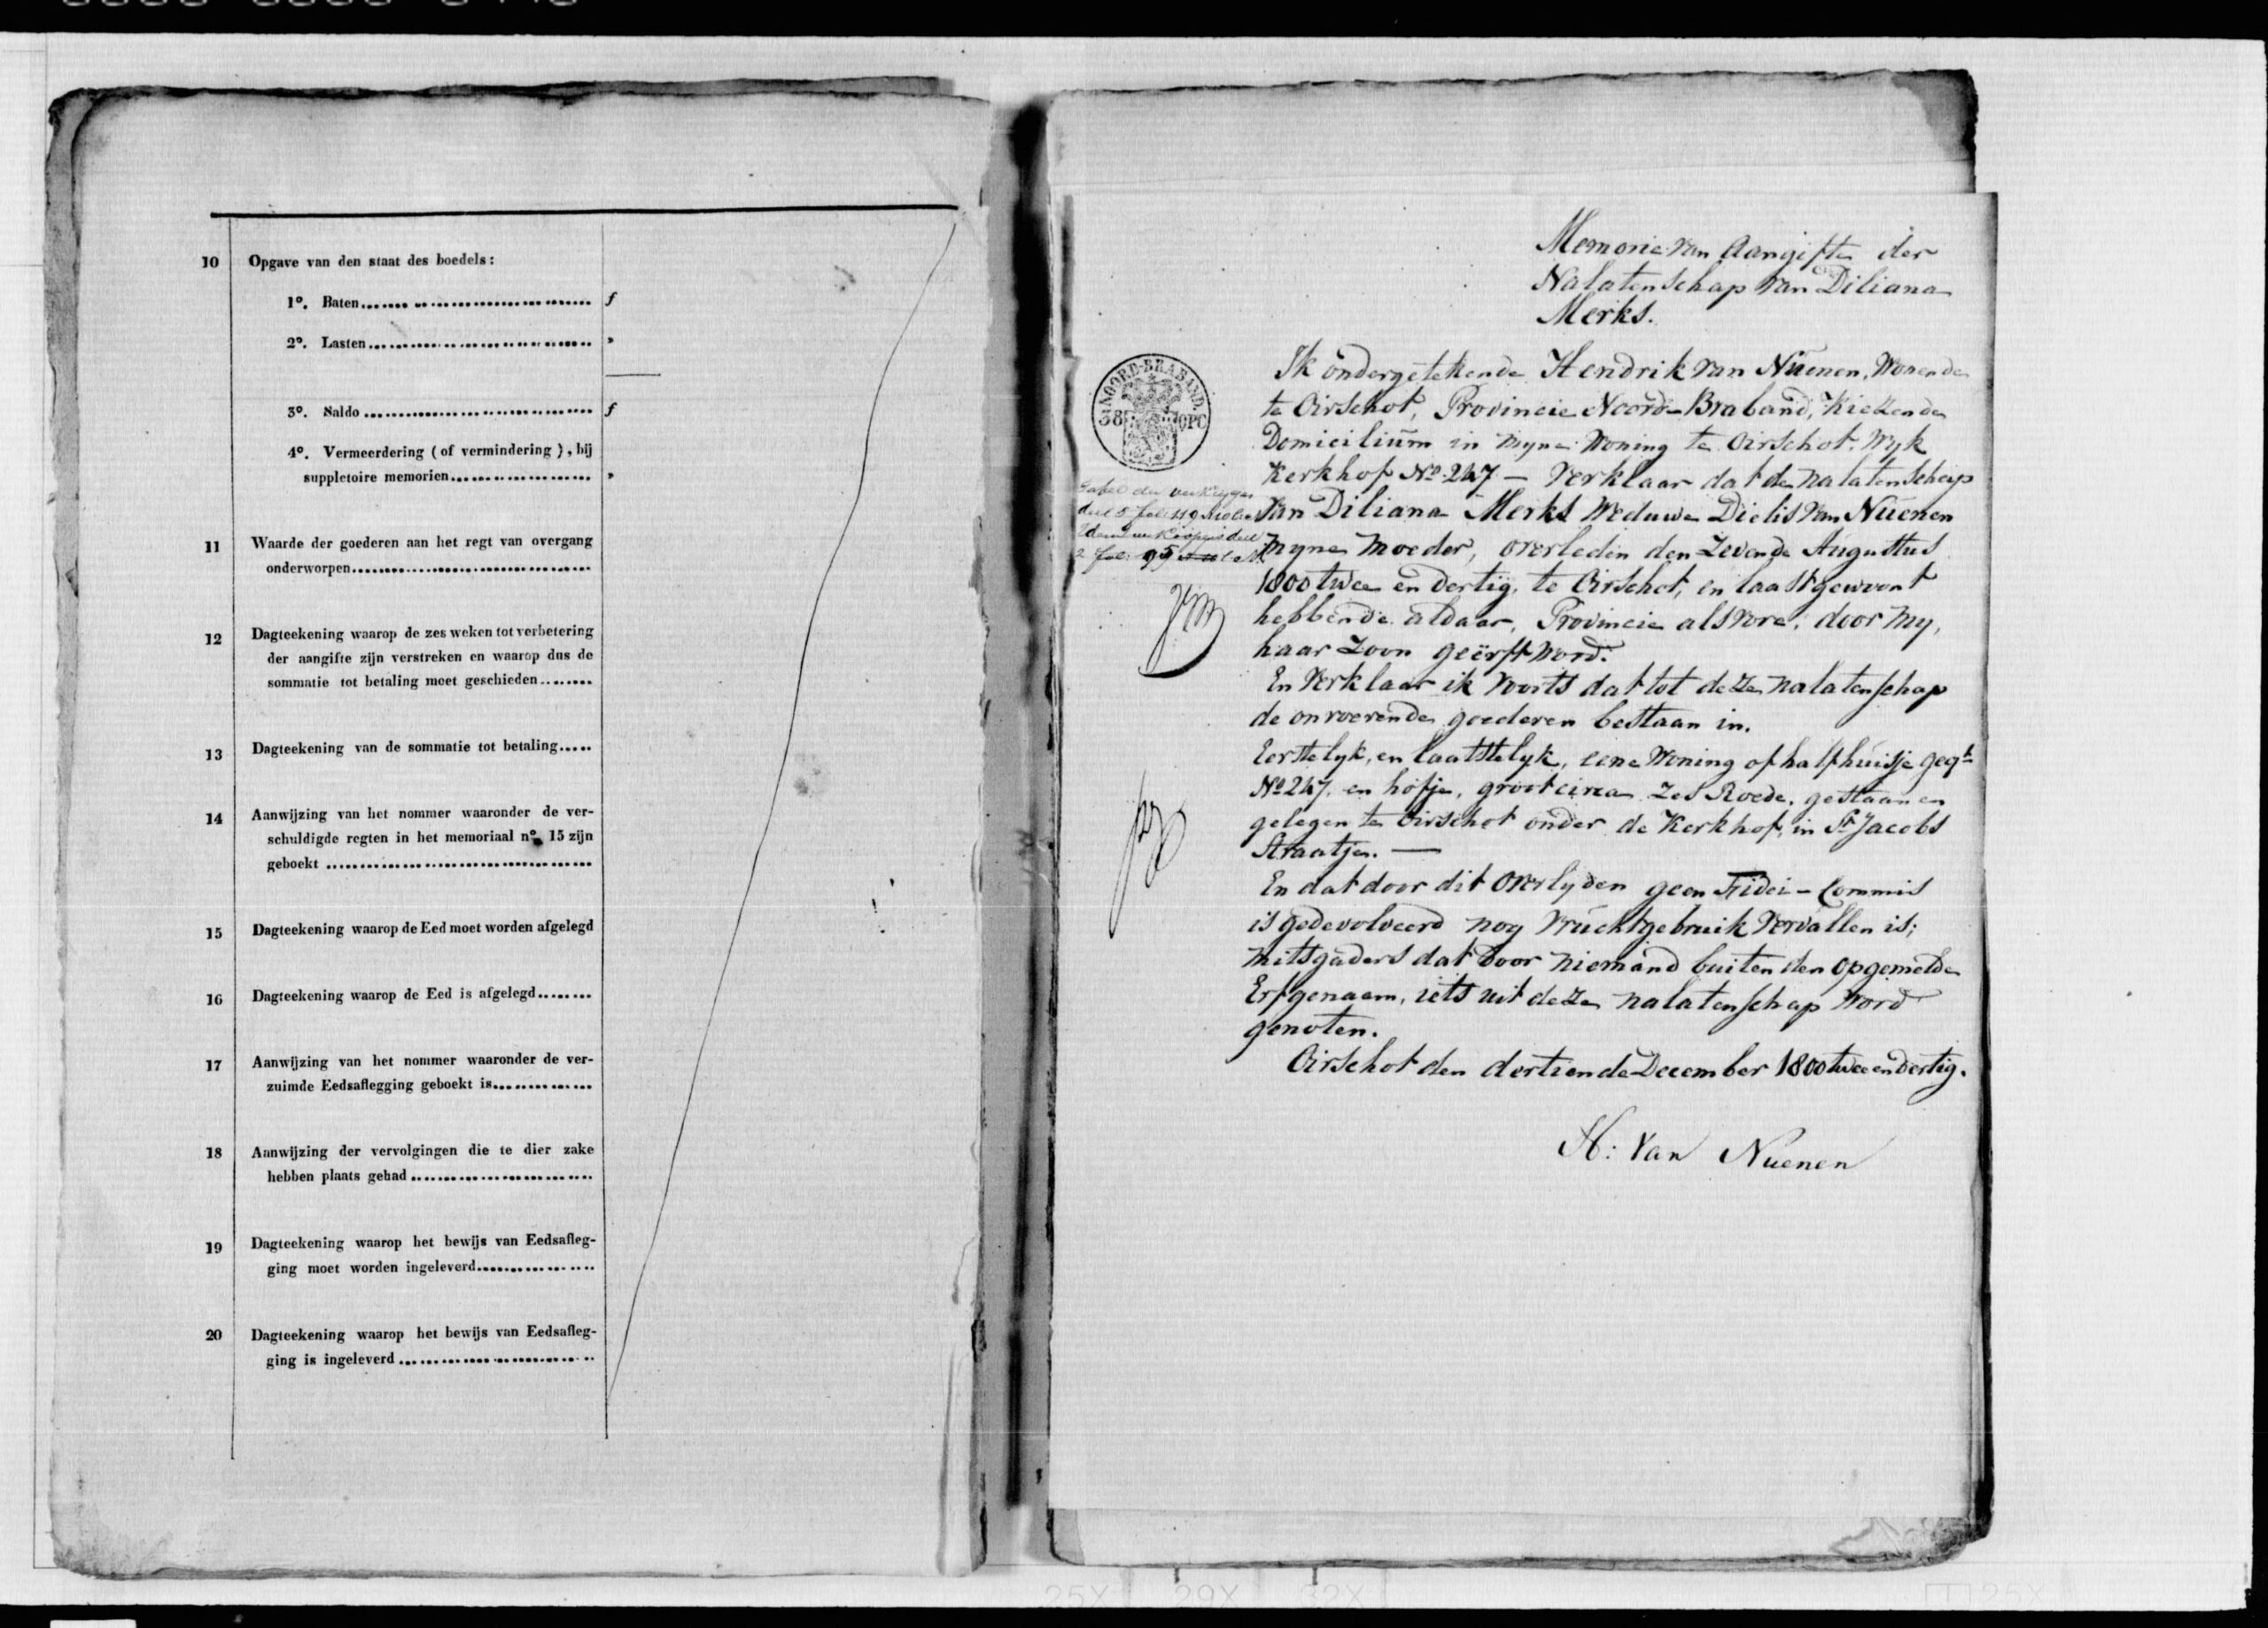 10 Opgave van den staat des boedels:
1º. Baten........................................ f
2º. Lasten........................................ »
3º. Saldo........................................ f
4º. Vermeerdering (of vermindering), bij
suppletoire memorien.................... »
11 Waarde der goederen aan het regt van overgang
onderworpen........................................
12 Dagteekening waarop de zes weken tot verbetering
der aangifte zijn verstreken en waarop dus de
sommatie tot betaling moet geschieden........
13 Dagteekening van de sommatie tot betaling.....
14 Aanwijzing van het nommer waaronder de ver-
schuldigde regten in het memoriaal nº. 15 zijn
geboekt........................................
15 Dagteekening waarop de Eed moet worden afgelegd
16 Dagteekening waarop de Eed is afgelegd........
17 Aanwijzing van het nommer waaronder de ver-
zuimde Eedsaflegging geboekt is..............
18 Aanwijzing der vervolgingen die te dier zake
hebben plaats gehad..........................
19 Dagteekening waarop het bewijs van Eedsafleg-
ging moet worden ingeleverd................
20 Dagteekening waarop het bewijs van Eedsafleg-
ging is ingeleverd..........................
Memorie van Aangifte der
Nalatenschap van Diliana
Merks.
NOORD-BRABAND.
38
OPC
Ik ondergetekende Hendrik van Nuenen, Wonende
te Oirschot, Provincie Noord-Braband, Kiezende
Domicilium in myne Woning te Oirschot, Wyk
Kerkhof Nº 247 — Verklaar dat de nalatenschap
van Diliana Merks Weduwe Dielis van Nuenen
myne moeder, overleden den Zevende Augustus
1800 twee en dertig, te Oirschot, en laast gewoont
hebbende aldaar, Provincie als vore, door my,
haar Zoon geërft word.
En Verklaar ik voorts dat tot deze nalatenschap
de onroerende goederen bestaan in.
Eerstelyk, en laatstelyk, eene Woning of half huisje geqt
Nº 247, en hofje, groot circa Zes Roede, gestaan en
gelegen te Oirschot onder de Kerkhof, in St Jacobs
Straatje. —
En dat door dit Overlyden geen Fidei-Commis
is gedevolveerd nog Vruchtgebruik Vervallen is;
mitsgaders dat door niemand buiten den opgemelde
Erfgenaem, iets uit deze nalatenschap Word
genoten.
Oirschot den dertiende December 1800 twee en dertig.
H: Van Nuenen